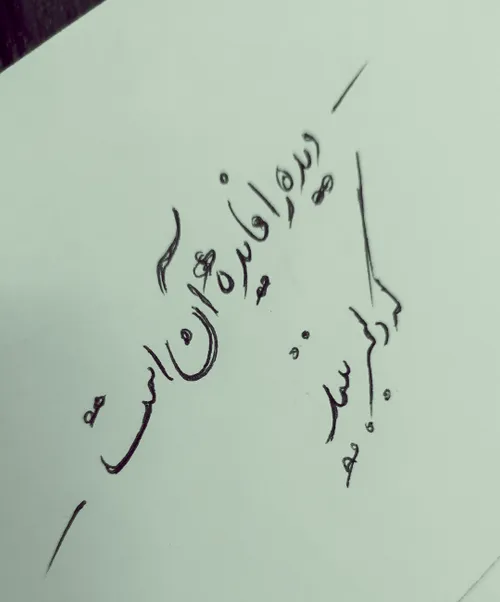 دیده را فایده آن است
که دلبر بیند